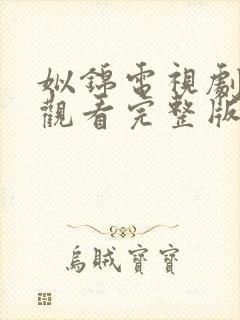 姒錦電視劇
觀看完整版
烏賊寶寶